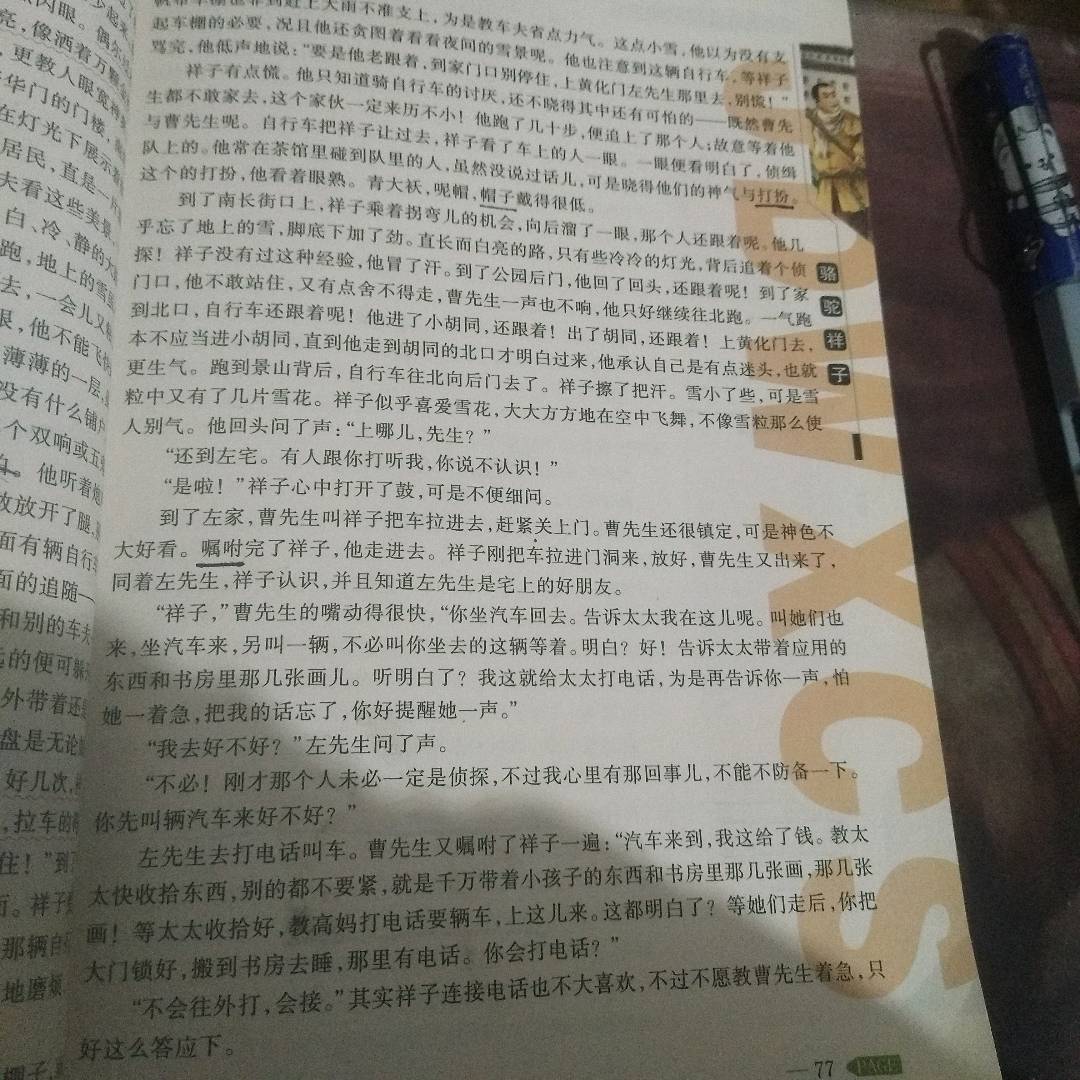 帆布车棚也非到赶上大雨不准支上，为是教车夫省点力气。这点小雪，他以为没有支
起车棚的必要，况且他还贪图着看看夜间的雪景呢。他也注意到这辆自行车，等祥子
骂完，他低声地说：“要是他老跟着，到家门口别停住，上黄化门左先生那里去，别慌！”
祥子有点慌。他只知道骑自行车的讨厌，还不晓得其中还有可怕的——既然曹先
生都不敢家去，这个家伙一定来历不小！他跑了几十步，便追上了那个人；故意等着他
与曹先生呢。自行车把祥子让过去，祥子看了车上的人一眼。一眼便看明白了，侦缉
队上的。他常在茶馆里碰到队里的人，虽然没说过话儿，可是晓得他们的神气与打扮。
这个的打扮，他看着眼熟。青大袄，呢帽，帽子戴得很低。
到了南长街口上，祥子乘着拐弯儿的机会，向后溜了一眼，那个人还跟着呢。他几
乎忘了地上的雪，脚底下加了劲。直长而白亮的路，只有些冷冷的灯光，背后追着个侦
探！祥子没有过这种经验，他冒了汗。到了公园后门，他回了回头，还跟着呢！到了家
门口，他不敢站住，又有点舍不得走，曹先生一声也不响，他只好继续往北跑。一气跑
到北口，自行车还跟着呢！他进了小胡同，还跟着！出了胡同，还跟着！上黄化门去，
本不应当进小胡同，直到他走到胡同的北口才明白过来，他承认自己是有点迷头，也就
更生气。跑到景山背后，自行车往北向后门去了。祥子擦了把汗。雪小了些，可是雪
粒中又有了几片雪花。祥子似乎喜爱雪花，大大方方地在空中飞舞，不像雪粒那么使
人别气。他回头问了声：“上哪儿，先生？”
“还到左宅。有人跟你打听我，你说不认识！”
“是啦！”祥子心中打开了鼓，可是不便细问。
到了左家，曹先生叫祥子把车拉进去，赶紧关上门。曹先生还很镇定，可是神色不
大好看。嘱咐完了祥子，他走进去。祥子刚把车拉进门洞来，放好，曹先生又出来了，
同着左先生，祥子认识，并且知道左先生是宅上的好朋友。
“祥子，”曹先生的嘴动得很快，“你坐汽车回去。告诉太太我在这儿呢。叫她们也
来，坐汽车来，另叫一辆，不必叫你坐去的这辆等着。明白？好！告诉太太带着应用的
东西和书房里那几张画儿。听明白了？我这就给太太打电话，为是再告诉你一声，怕
她一着急，把我的话忘了，你好提醒她一声。”
“我去好不好？”左先生问了声。
“不必！刚才那个人未必一定是侦探，不过我心里有那回事儿，不能不防备一下。
你先叫辆汽车来好不好？”
左先生去打电话叫车。曹先生又嘱咐了祥子一遍：“汽车来到，我这给了钱。教太
太快收拾东西，别的都不要紧，就是千万带着小孩子的东西和书房里那几张画，那几张
画！等太太收拾好，教高妈打电话要辆车，上这儿来。这都明白了？等她们走后，你把
大门锁好，搬到书房去睡，那里有电话。你会打电话？”
“不会往外打，会接。”其实祥子连接电话也不大喜欢，不过不愿教曹先生着急，只
好这么答应下。
骆
驼
祥
子
DWXCS
77
PAGE